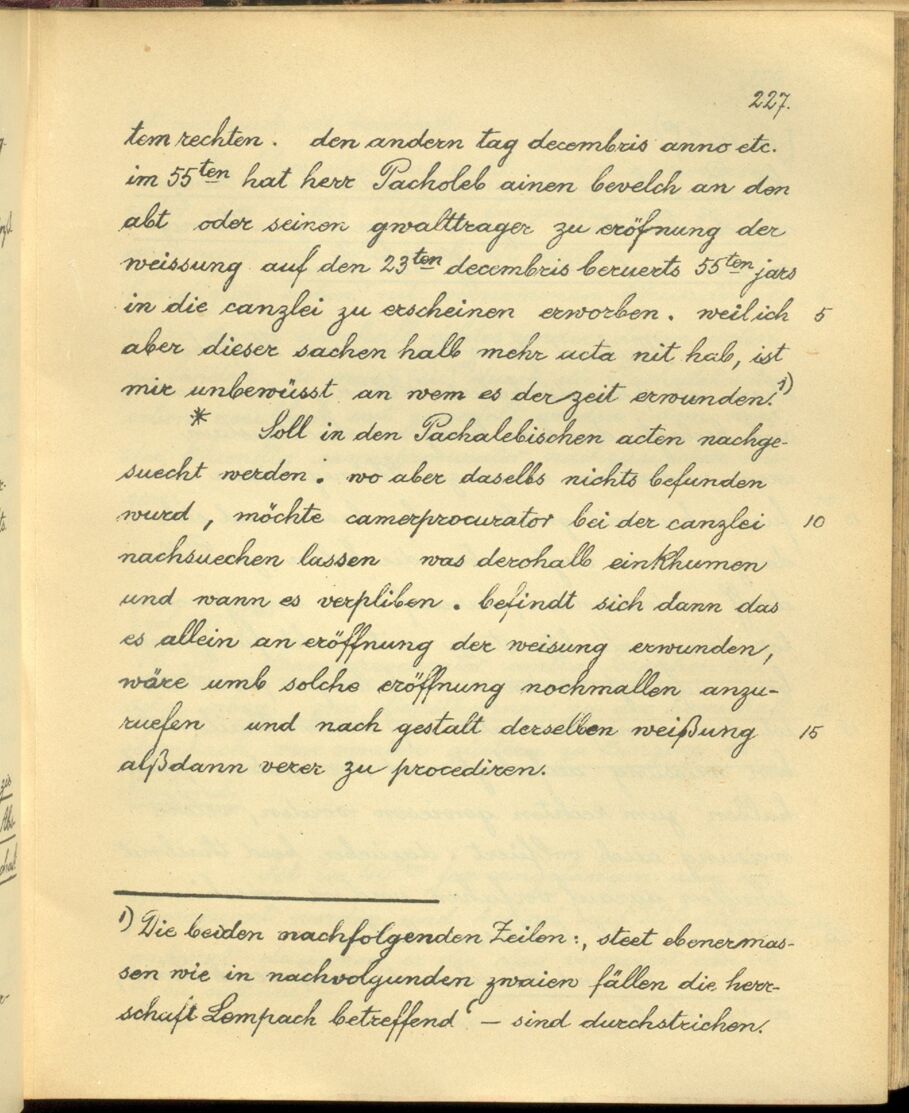 227.
tem rechten. den andern tag decembris anno etc.
im 55ten hat herr Pacholeb ainen bevelch an den
abt oder seinen gwalttrager zu eröfnung der
weissung auf den 23ten decembris beruerts 55ten jars
in die canzlei zu erscheinen erworben. weil ich 5
aber dieser sachen halb mehr acta nit hab, ist
mir unbewüsst an wem es der zeit erwunden.1)
* Soll in den Pachalebischen acten nachge-
suecht werden. wo aber daselbs nichts befunden
wurd, möchte camerprocurator bei der canzlei 10
nachsuechen lassen was derohalb einkhumen
und wann es verpliben. befindt sich dann das
es allein an eröffnung der weisung erwunden,
wäre umb solche eröffnung nochmallen anzu-
ruefen und nach gestalt derselben weißung 15
alßdann verer zu procediren.
1) Die beiden nachfolgenden Zeilen:, steet ebenermas-
sen wie in nachvolgunden zwaien fällen die herr-
schaft Lempach betreffend‘ – sind durchstrichen.